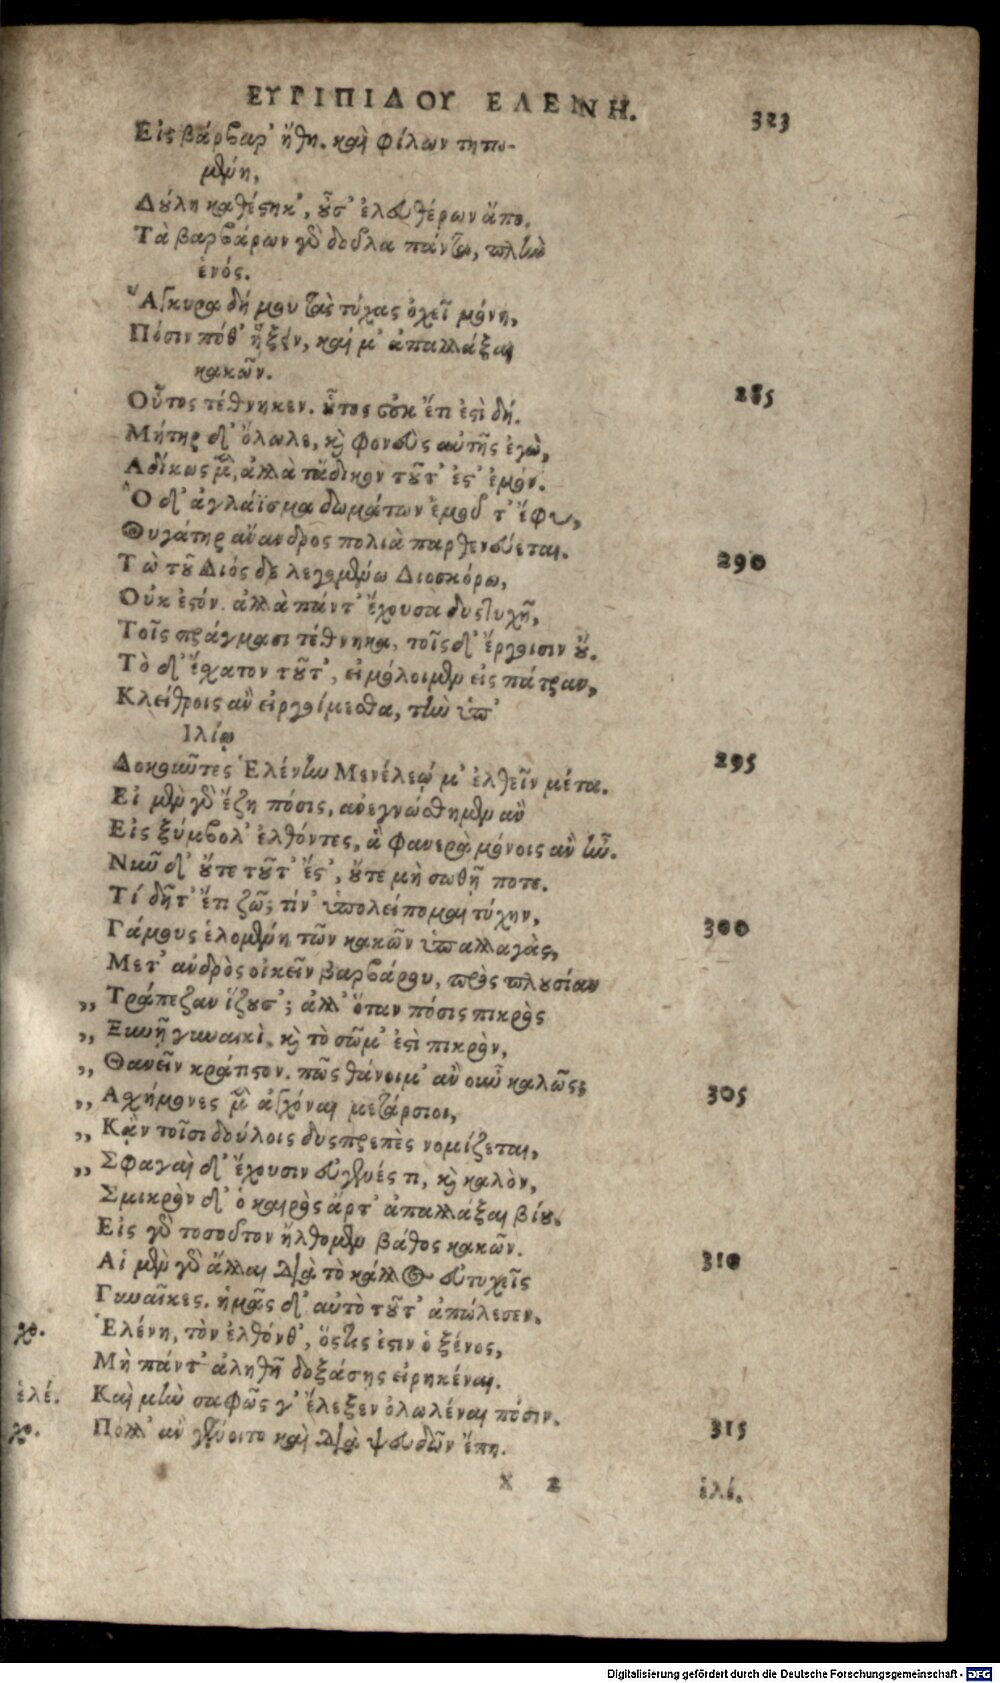 ΕΥΡΙΠΙΔΟΥ ΕΛΕΝΗ. 323
Εἰς βάρβαρ' ἤθη. καὶ φίλων τητω-
μένη,
Δούλη καθέστηκ', οὖσ' ἐλευθέρων ἄπο.
Τὰ βαρβάρων γὸ δοῦλα πάντα, πλὴν
ἑνός.
Ἄγκυρα δή μου τὰς τύχας ὀχεῖ μόνη,
Πόσιν πόθ' ἥξειν, καί μ' ἀπαλλάξαι
κακῶν. 285
Οὗτος τέθνηκεν. οὗτος οὐκ ἔτι ἐστὶ δή.
Μήτηρ δ' ὄλωλε, καὶ φονεὺς αὐτῆς ἐγὼ,
Αδίκως μὲν, ἀλλὰ τἄδικον τοῦτ' ἔστ' ἐμόν.
Ὃ δ' ἀγλάϊσμα δωμάτων ἐμοῦ τ' ἔφυ,
Θυγάτηρ ἄνανδρος πολιὰ παρθενεύεται.
Τὼ τοῦ Διός δὲ λεγομένω Διοσκόρω, 290
Οὐκ ἐστόν. ἀλλὰ πάντ' ἔχουσα δυστυχῆ,
Τοῖς πράγμασι τέθνηκα, τοῖς δ' ἔργοισιν οὔ.
Τὸ δ' ἔσχατον τοῦτ', εἰ μόλοιμεν εἰς πάτραν,
Κλείθροις ἂν εἰργοίμεσθα, τὴν ὑπ'
Ιλίῳ
Δοκοῦντες Ἑλένην Μενέλεῴ μ' ἐλθεῖν μέτα. 295
Εἰ μὲν γὸ ἔζη πόσις, ἀνεγνώσθημεν ἂν
Εἰς ξύμβολ' ἐλθόντες, ἃ φανερὰ μόνοις ἂν ἦν.
Νῦν δ' οὔτε τοῦτ' ἔστ', οὔτε μὴ σωθῇ ποτε.
Τί δῆτ' ἔτι ζῶ; τίν' ὑπολείπομαι τύχην,
Γάμους ἑλομένη τῶν κακῶν ὑπαλλαγὰς, 300
Μετ' ἀνδρὸς οἰκεῖν βαρβάρου, πρὸς πλουσίαν
„ Τράπεζαν ἵζουσ'; ἀλλ' ὅταν πόσις πικρὸς
„ Ξυνῇ γυναικὶ, καὶ τὸ σῶμ' ἐστὶ πικρὸν,
„ Θανεῖν κράτιστον. πῶς θάνοιμ' ἂν οὖν καλῶς;
„ Ασχήμονες μὲν ἀγχόναι μετάρσιοι, 305
„ Κἀν τοῖσι δούλοις δυσπρεπὲς νομίζεται,
„ Σφαγαὶ δ' ἔχουσιν εὐγενές τι, καὶ καλὸν,
Σμικρὸν δ' ὁ καιρὸς ἄρτ' ἀπαλλάξαι βίου.
Εἰς γὸ τοσοῦτον ἤλθομεν βάθος κακῶν.
Αἱ μὲν γὸ ἄλλαι διὰ τὸ κάλλος εὐτυχεῖς 310
Γυναῖκες. ἡμᾶς δ' αὐτὸ τοῦτ' ἀπώλεσεν.
χο. Ἑλένη, τὸν ἐλθόνθ', ὅστις ἐστιν ὁ ξένος,
Μὴ πάντ' ἀληθῆ δοξάσῃς εἰρηκέναι.
ἑλέ. Καὶ μὴν σαφῶς γ' ἔλεξεν ὀλωλέναι πόσιν.
χο. Πολλ' ἂν γένοιτο καὶ διὰ ψευδῶν ἔπη. 315
X 2 ἑλέ.
Digitalisierung gefördert durch die Deutsche Forschungsgemeinschaft - DFG